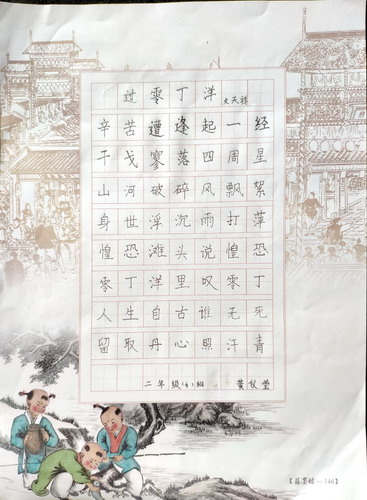 过零丁洋 文天祥
辛苦遭逢起一经
干戈寥落四周星
山河破碎风飘絮
身世浮沉雨打萍
惶恐滩头说惶恐
零丁洋里叹零丁
人生自古谁无死
留取丹心照汗青
二年级(4)班 黄